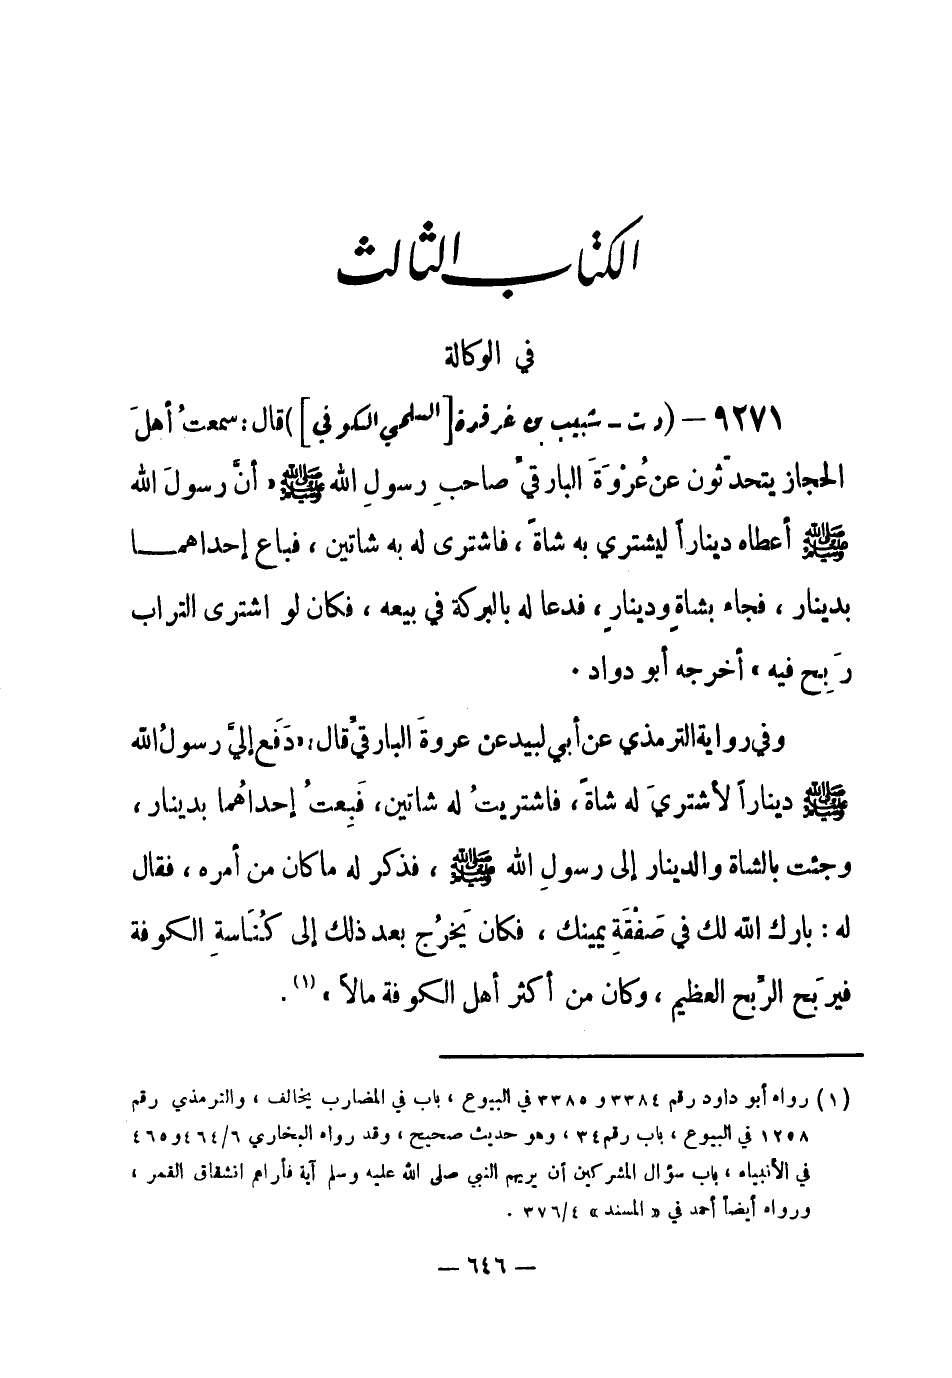 الكتاب الثالث
في الوكالة
٩٢٧١ – (د ت - شبيب بن غرقدة [السلمي الكوفي]) قال: سمعتُ أهلَ
الحجاز يتحدَّثون عن عُرْوَةَ البارقيِّ صاحبِ رسولِ الله ﷺ «أنَّ رسولَ الله
ﷺ أعطاه ديناراً ليشتري به شاةً، فاشترى له به شاتين، فباع إحداهمـــا
بدينار، فجاء بشاةٍ ودينارٍ، فدعا له بالبركة في بيعه، فكان لو اشترى التراب
رَبِح فيه» أخرجه أبو دواد.
وفي رواية الترمذي عن أبي لبيد عن عروةَ البارقيِّ قال: «دَفَع إليَّ رسولُ الله
ﷺ ديناراً لأشتريَ له شاةً، فاشتريتُ له شاتين، فَبِعتُ إحداهُما بدينار،
وجئت بالشاة والدينار إلى رسولِ الله ﷺ، فذكر له ما كان من أمره، فقال
له: بارك الله لك في صَفْقَةِ يمينك، فكان يَخرُج بعد ذلك إلى كُنَاسةِ الكوفة
فيربَح الرِّبح العظيم، وكان من أكثر أهل الكوفة مالاً» (١).
(١) رواه أبو داود رقم ٣٣٨٤ و ٣٣٨٥ في البيوع، باب في المضارب يخالف، والترمذي رقم
١٢٥٨ في البيوع، باب رقم ٣٤، وهو حديث صحيح، وقد رواه البخاري ٤٦٤/٦ و ٤٦٥
في الأنبياء، باب سؤال المشركين أن يريهم النبي صلى الله عليه وسلم آية فأراهم انشقاق القمر،
ورواه أيضاً أحمد في «المسند» ٣٧٦/٤.
– ٦٤٦ –